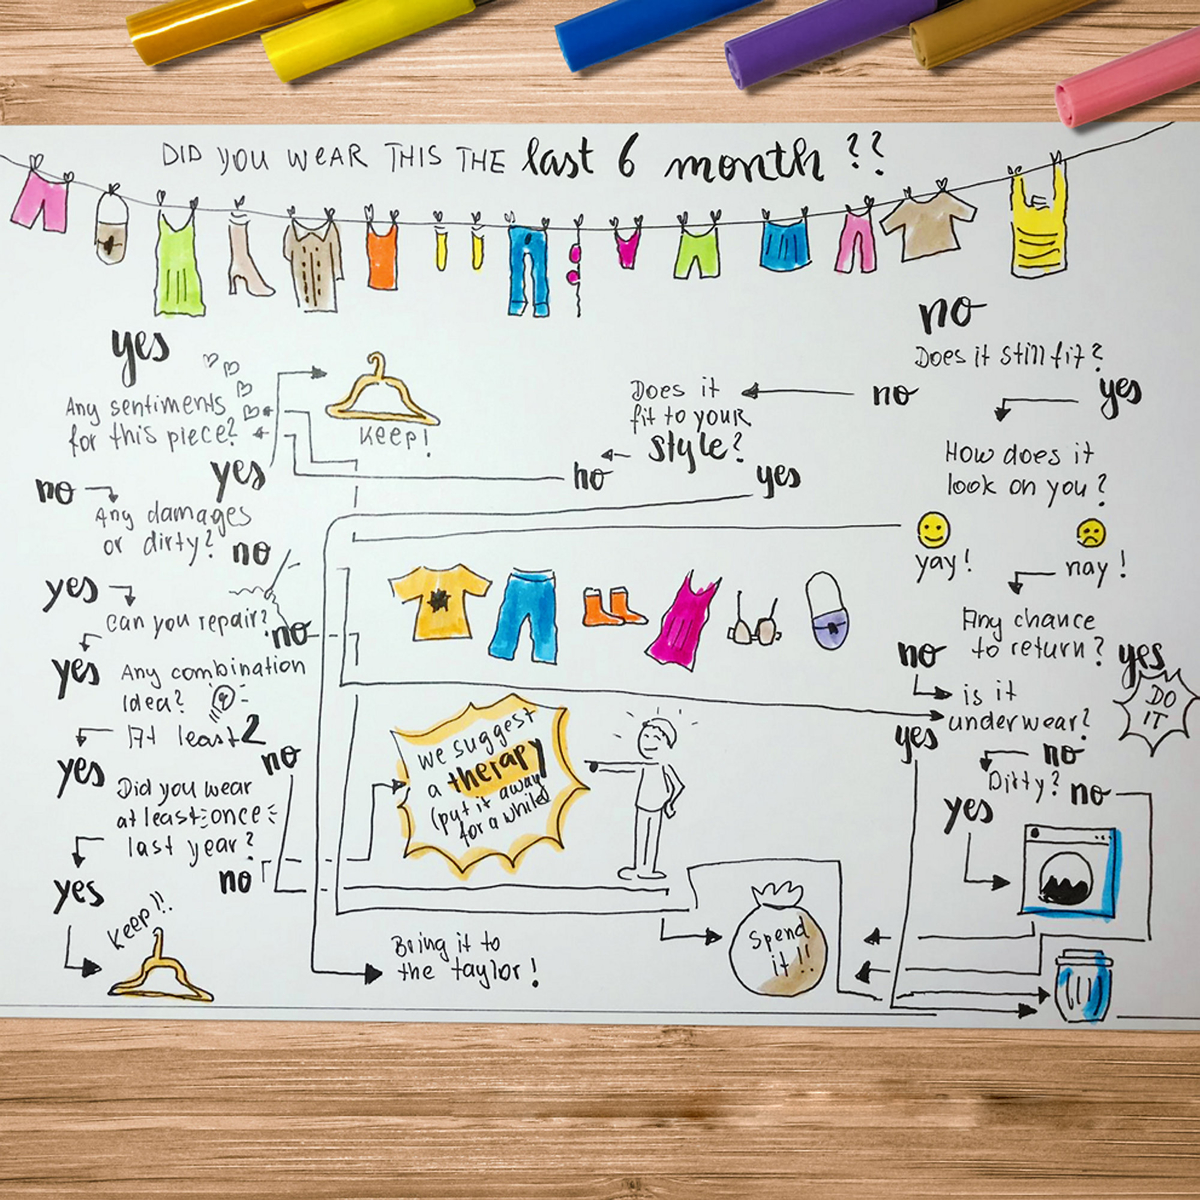 DID YOU WEAR THIS THE last 6 month??
yes
Any sentiments
for this piece?
yes
Keep!
no
Any damages
or dirty?
no
yes
Can you repair?
no
yes
Any combination
Idea?
At least 2
no
yes
Did you wear
at least once
last year?
no
yes
Keep!!
no
Does it still fit?
no
yes
Does it
fit to your
style?
no
yes
How does it
look on you?
yay!
nay!
Any chance
to return?
no
yes
DO
IT
is it
underwear?
yes
no
Dirty?
no
yes
we suggest
a therapy
(put it away
for a while)
Bring it to
the taylor!
Spend
it!!